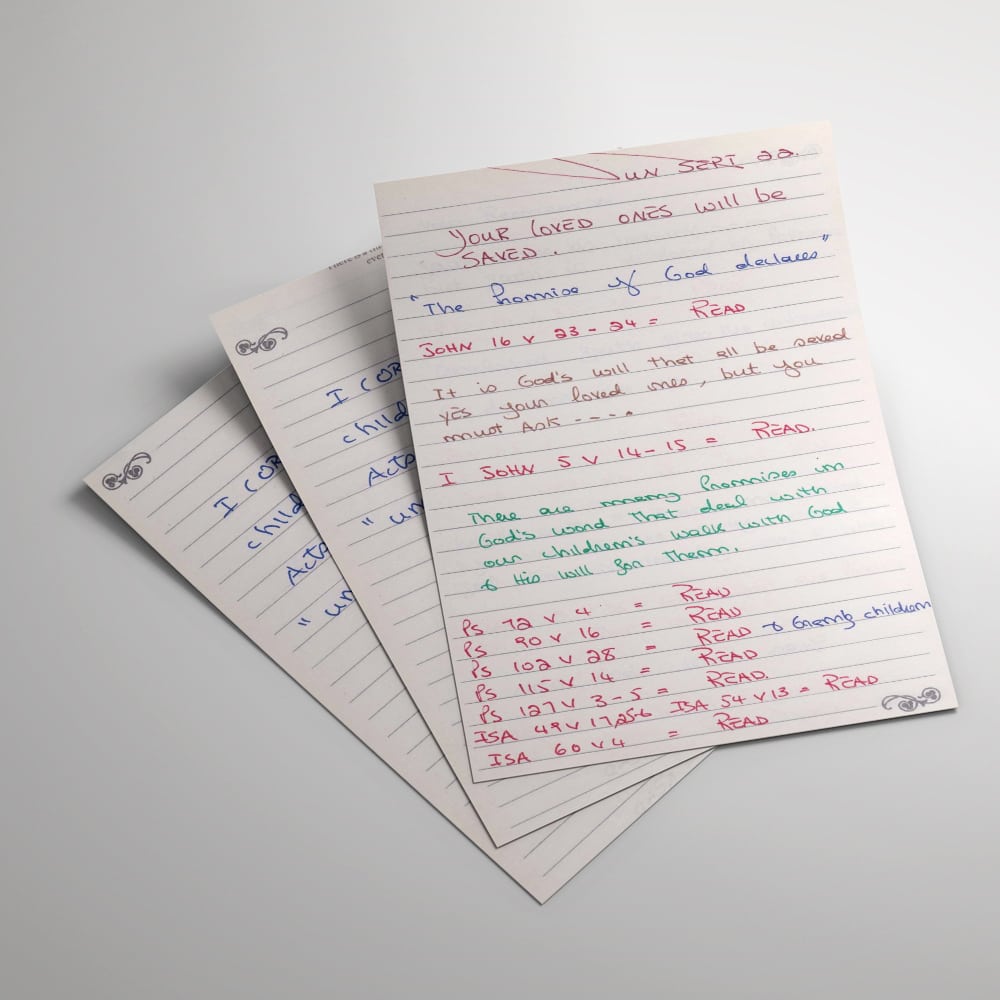 SUN SEPT 22.
YOUR LOVED ONES will be
SAVED.
"The Promise of God declares"
JOHN 16 v 23-24 = READ
It is God's will that all be saved
yes your loved ones, but you
must Ask ----
I JOHN 5 v 14-15 = READ.
There are many Promises in
God's word That deal with
our children's walk with God
& His will for Them.
Ps 72 v 4 = READ
Ps 90 v 16 = READ
Ps 102 v 28 = READ & children
Ps 115 v 14 = READ
Ps 127 v 3-5 = READ.
ISA 49 v 17, 25-6 ISA 54 v 13 = READ
ISA 60 v 4 = READ
I COR
child
Acts
" un
I COR
child
Acts
" un